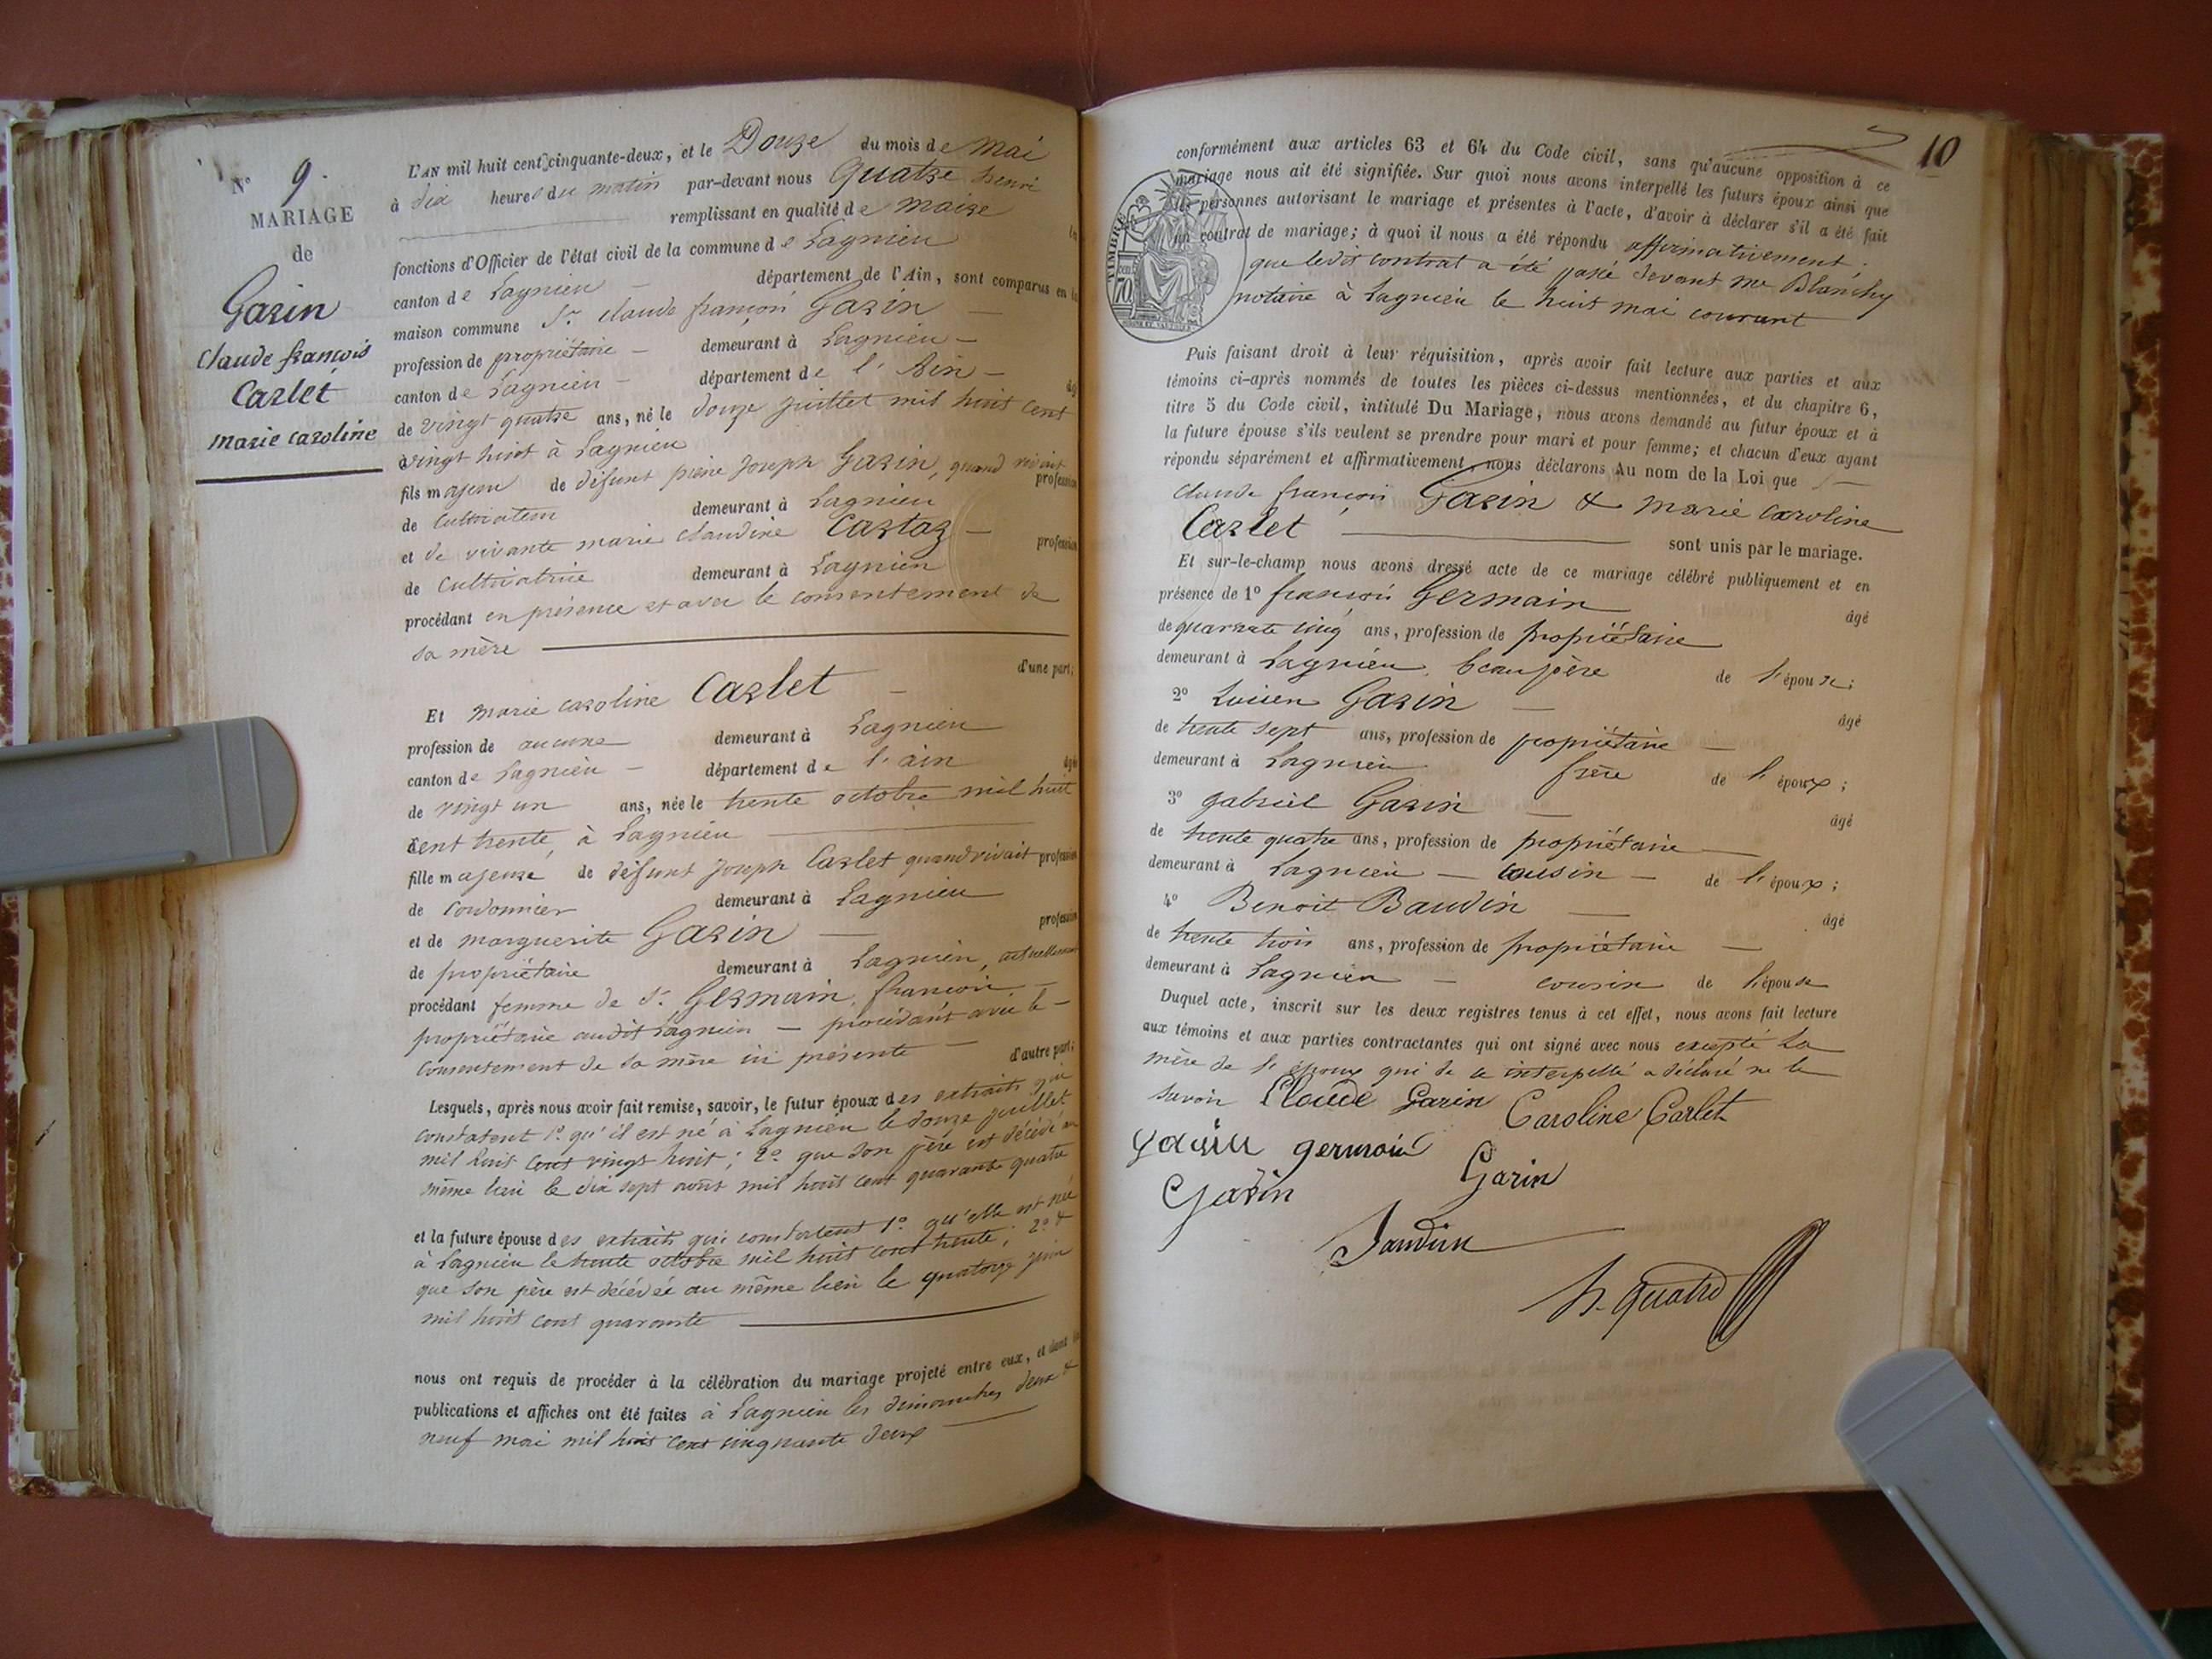 N° 9.
MARIAGE
de
Garin
Claude françois
Carlet
marie caroline
L'AN mil huit cent cinquante-deux, et le Douze du mois de Mai
à dix heures du matin par-devant nous Quatre henri
remplissant en qualité de maire
fonctions d'Officier de l'état civil de la commune de Lagnieu
canton de Lagnieu département de l'Ain, sont comparus en la
maison commune Sr claude françois Garin
profession de propriétaire demeurant à Lagnieu
canton de Lagnieu département de l'Ain
de vingt quatre ans, né le douze juillet mil huit cent
vingt huit à Lagnieu
fils majeur de défunt pierre Joseph Garin, quand vivait profession
de Cultivateur demeurant à Lagnieu
et de vivante marie claudine Cartaz profession
de Cultivatrice demeurant à Lagnieu
procédant en présence et avec le consentement de
sa mère
d'une part;
Et marie caroline Carlet
profession de aucune demeurant à Lagnieu
canton de Lagnieu département de l'ain âgée
de vingt un ans, née le trente octobre mil huit
cent trente, à Lagnieu
fille majeure de défunt Joseph Carlet quand vivait profession
de Cordonnier demeurant à Lagnieu
et de marguerite Garin profession
de propriétaire demeurant à Lagnieu, actuellement
procédant femme de Sr Germain, françois
propriétaire audit Lagnieu — procédant avec le
consentement de sa mère ici présente
d'autre part;
Lesquels, après nous avoir fait remise, savoir, le futur époux des extraits qui
constatent 1° qu'il est né à Lagnieu le douze juillet
mil huit cent vingt huit; 2° que son père est décédé au
même lieu le dix sept août mil huit cent quarante quatre
et la future épouse des extraits qui constatent 1° qu'elle est née
à Lagnieu le trente octobre mil huit cent trente; 2° &
que son père est décédé au même lieu le quatorze juin
mil huit cent quarante
nous ont requis de procéder à la célébration du mariage projeté entre eux, et dont les
publications et affiches ont été faites à Lagnieu les dimanches deux &
neuf mai mil huit cent cinquante deux
10
conformément aux articles 63 et 64 du Code civil, sans qu'aucune opposition à ce
mariage nous ait été signifiée. Sur quoi nous avons interpellé les futurs époux ainsi que
les personnes autorisant le mariage et présentes à l'acte, d'avoir à déclarer s'il a été fait
un contrat de mariage; à quoi il nous a été répondu affirmativement.
que ledit contrat a été passé devant Me Blanchy
notaire à Lagnieu le huit mai courant
TIMBRE
70
Puis faisant droit à leur réquisition, après avoir fait lecture aux parties et aux
témoins ci-après nommés de toutes les pièces ci-dessus mentionnées, et du chapitre 6,
titre 5 du Code civil, intitulé Du Mariage, nous avons demandé au futur époux et à
la future épouse s'ils veulent se prendre pour mari et pour femme; et chacun d'eux ayant
répondu séparément et affirmativement, nous déclarons Au nom de la Loi que
Claude françois Garin & marie caroline
Carlet sont unis par le mariage.
Et sur-le-champ nous avons dressé acte de ce mariage célébré publiquement et en
présence de 1° françois Germain âgé
de quarante cinq ans, profession de propriétaire
demeurant à Lagnieu beaupère de l'épouse;
2° Lucien Garin âgé
de trente sept ans, profession de propriétaire
demeurant à Lagnieu frère de l'époux;
3° Gabriel Garin âgé
de trente quatre ans, profession de propriétaire
demeurant à Lagnieu — cousin — de l'époux;
4° Benoit Baudin âgé
de trente trois ans, profession de propriétaire
demeurant à Lagnieu cousin de l'épouse
Duquel acte, inscrit sur les deux registres tenus à cet effet, nous avons fait lecture
aux témoins et aux parties contractantes qui ont signé avec nous excepté la
mère de l'époux qui de ce interpellé a déclaré ne le
savoir Claude Garin Caroline Carlet
garin germain
Garin Garin
Baudin
h. Quatre